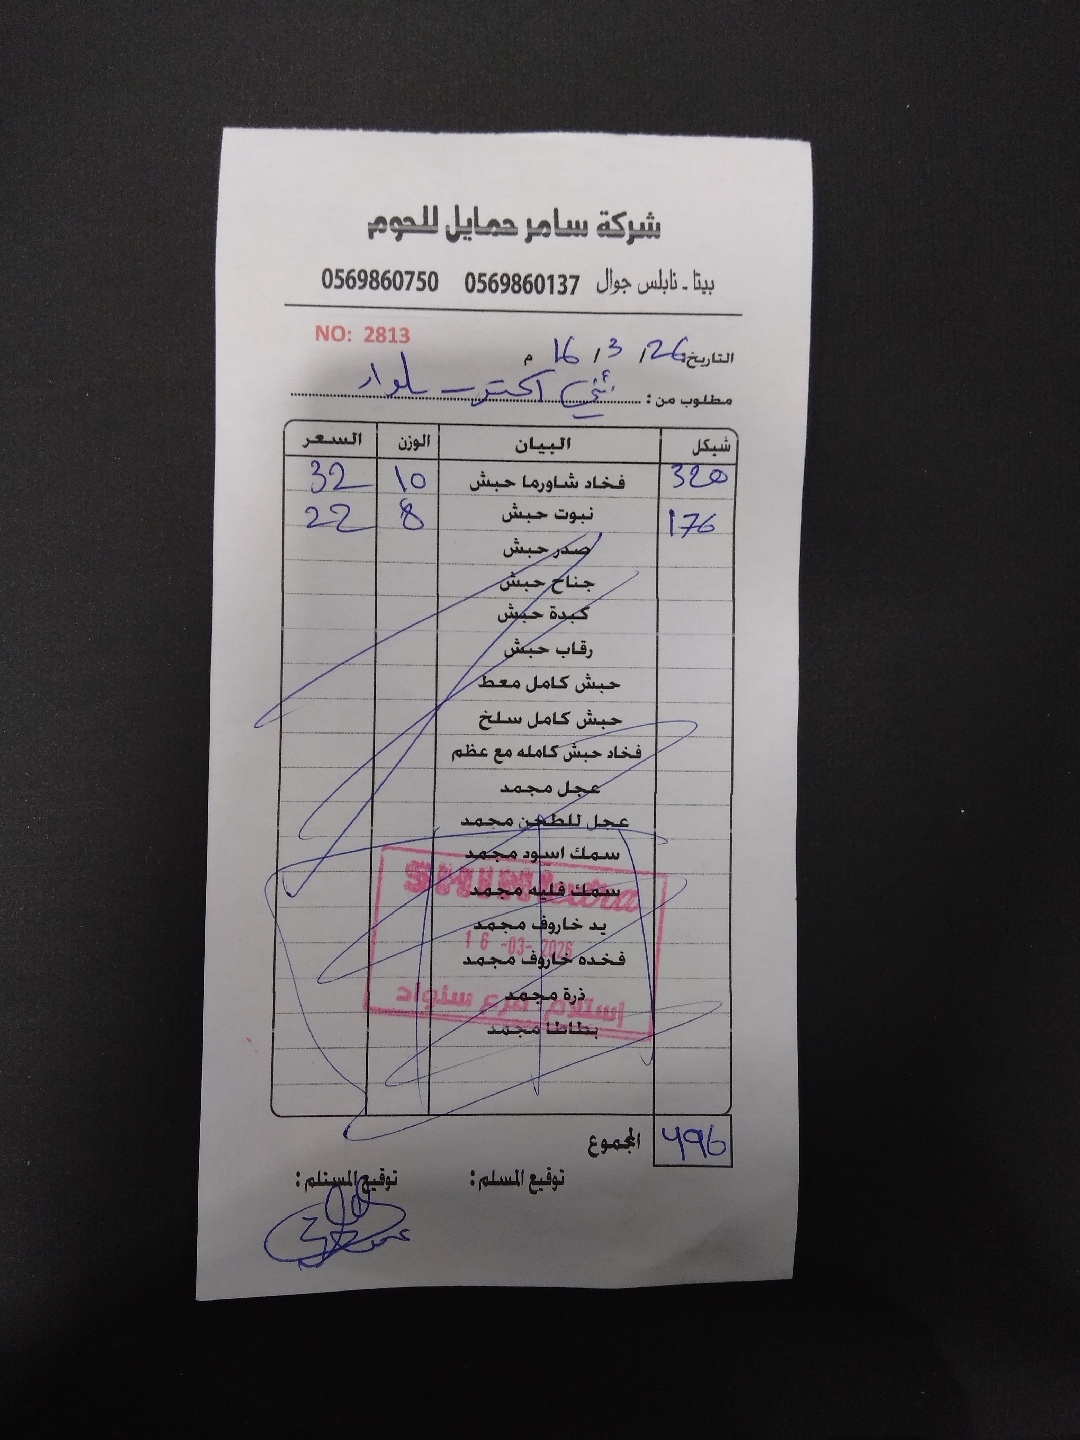 شركة سامر حمايل للحوم
بيتا - نابلس جوال 0569860137 0569860750
NO: 2813
التاريخ: 26 / 3 / 16 م
مطلوب من:
شيكل البيان الوزن السعر
320 فخاد شاورما حبش 10 32
176 نبوت حبش 8 22
صدر حبش
جناح حبش
كبدة حبش
رقاب حبش
حبش كامل معط
حبش كامل سلخ
فخاد حبش كامله مع عظم
عجل مجمد
عجل للطحن مجمد
سمك اسود مجمد
سمك فليه مجمد
يد خاروف مجمد
16 -03- 2026
فخده خاروف مجمد
ذرة مجمد
إستلام فرع
بطاطا مجمد
المجموع 496
توقيع المسلم: توقيع المستلم: